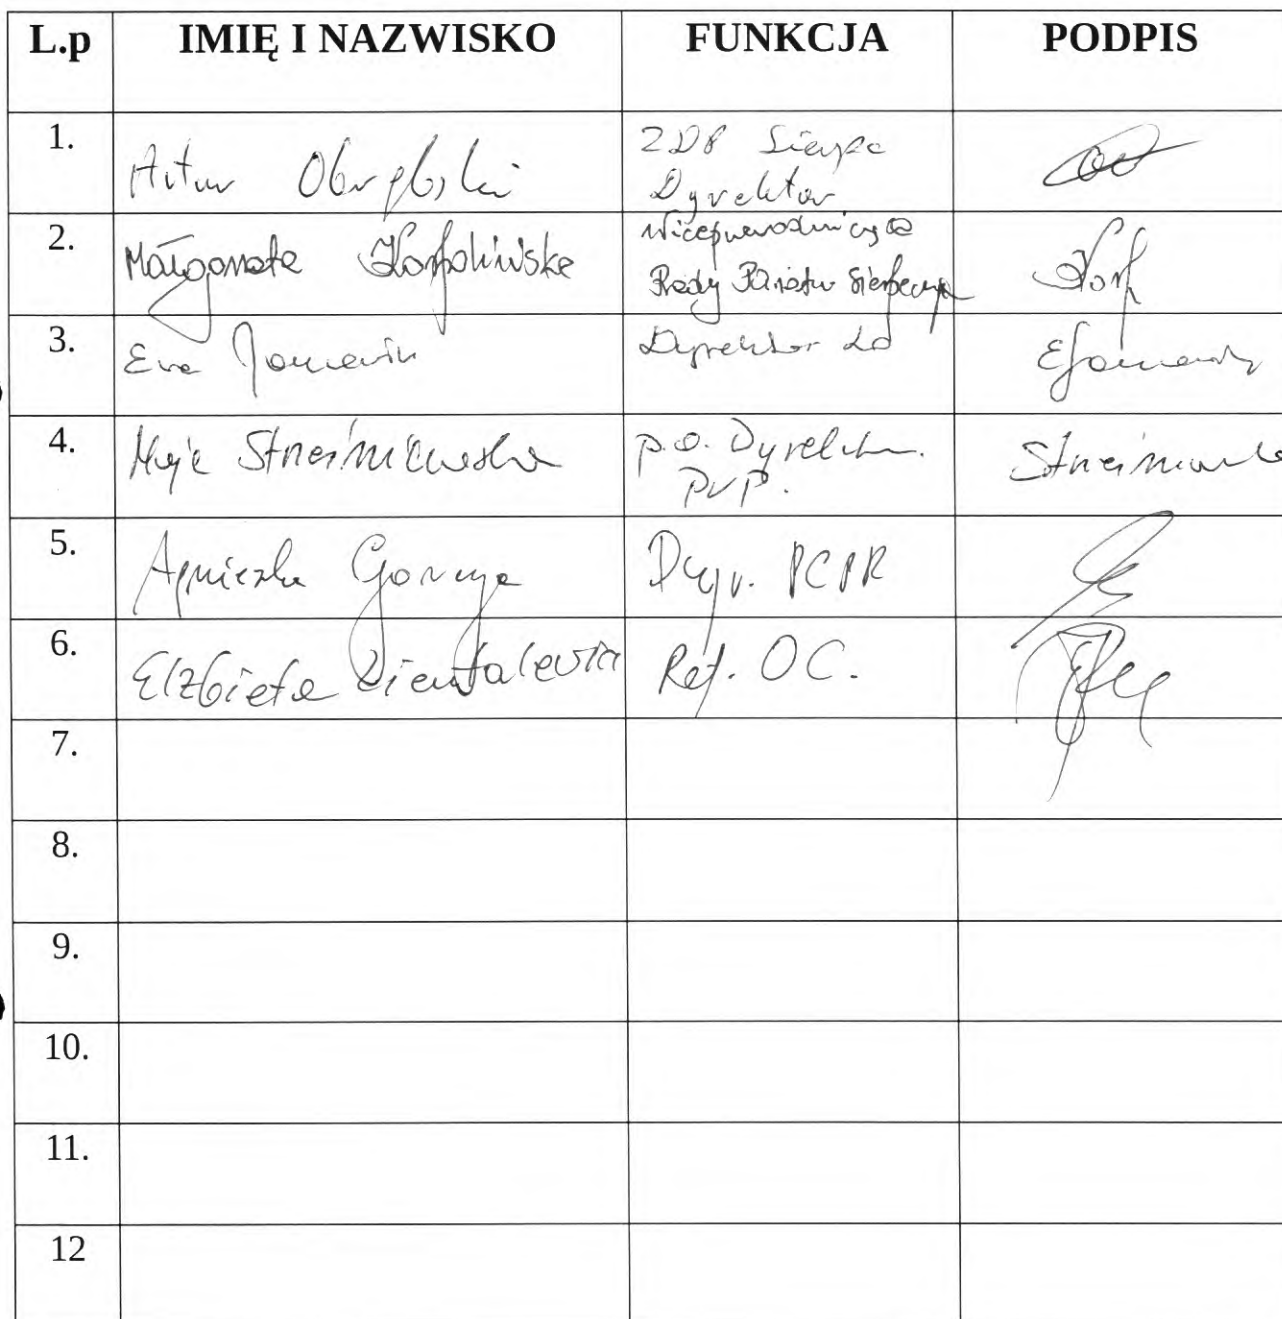 L.p IMIĘ I NAZWISKO FUNKCJA PODPIS
1. Artur Obrębski ZDP Sierpc
Dyrektor
2. Małgorzata Korpolińska Wiceprzewodnicząca
Rady Powiatu Sierpeckiego
3. Ewa Dyrektor LO
4. Maja Strześniewska p.o. Dyrektora
PUP.
5. Agnieszka Gorczyca Dyr. PCPR
6. Elżbieta Zientalewicz Ref. OC.
7.
8.
9.
10.
11.
12